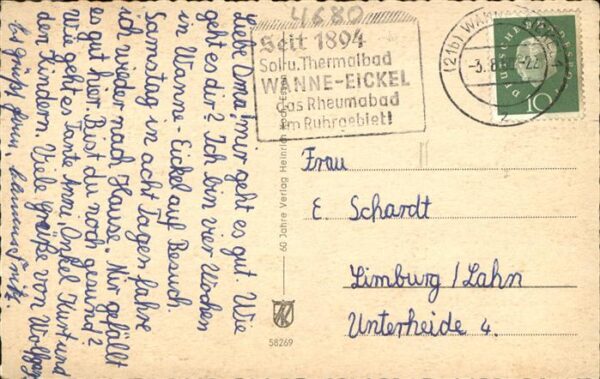 4680
Seit 1894
Sol-u. Thermalbad
WANNE-EICKEL
das Rheumabad
im Ruhrgebiet!
(21b) WANNE-
-3.8.
-22
DEUTSCHE BUNDESPOST
10
Liebe Oma! mir geht es gut. Wie
geht es dir? Ich bin vier Wochen
in Wanne-Eickel auf Besuch.
Samstag in acht Tagen fahre
ich wieder nach Hause. Mir gefällt
es gut hier. Bist du noch gesund?
Wie geht es Tante Anni, Onkel Kurt und
den Kindern. Viele grüße von Wolfgang
Es grüßt
60 Jahre Verlag Heinrich Koch, Essen
58269
Frau
E. Schardt
Limburg/Lahn
Unterheide 4.